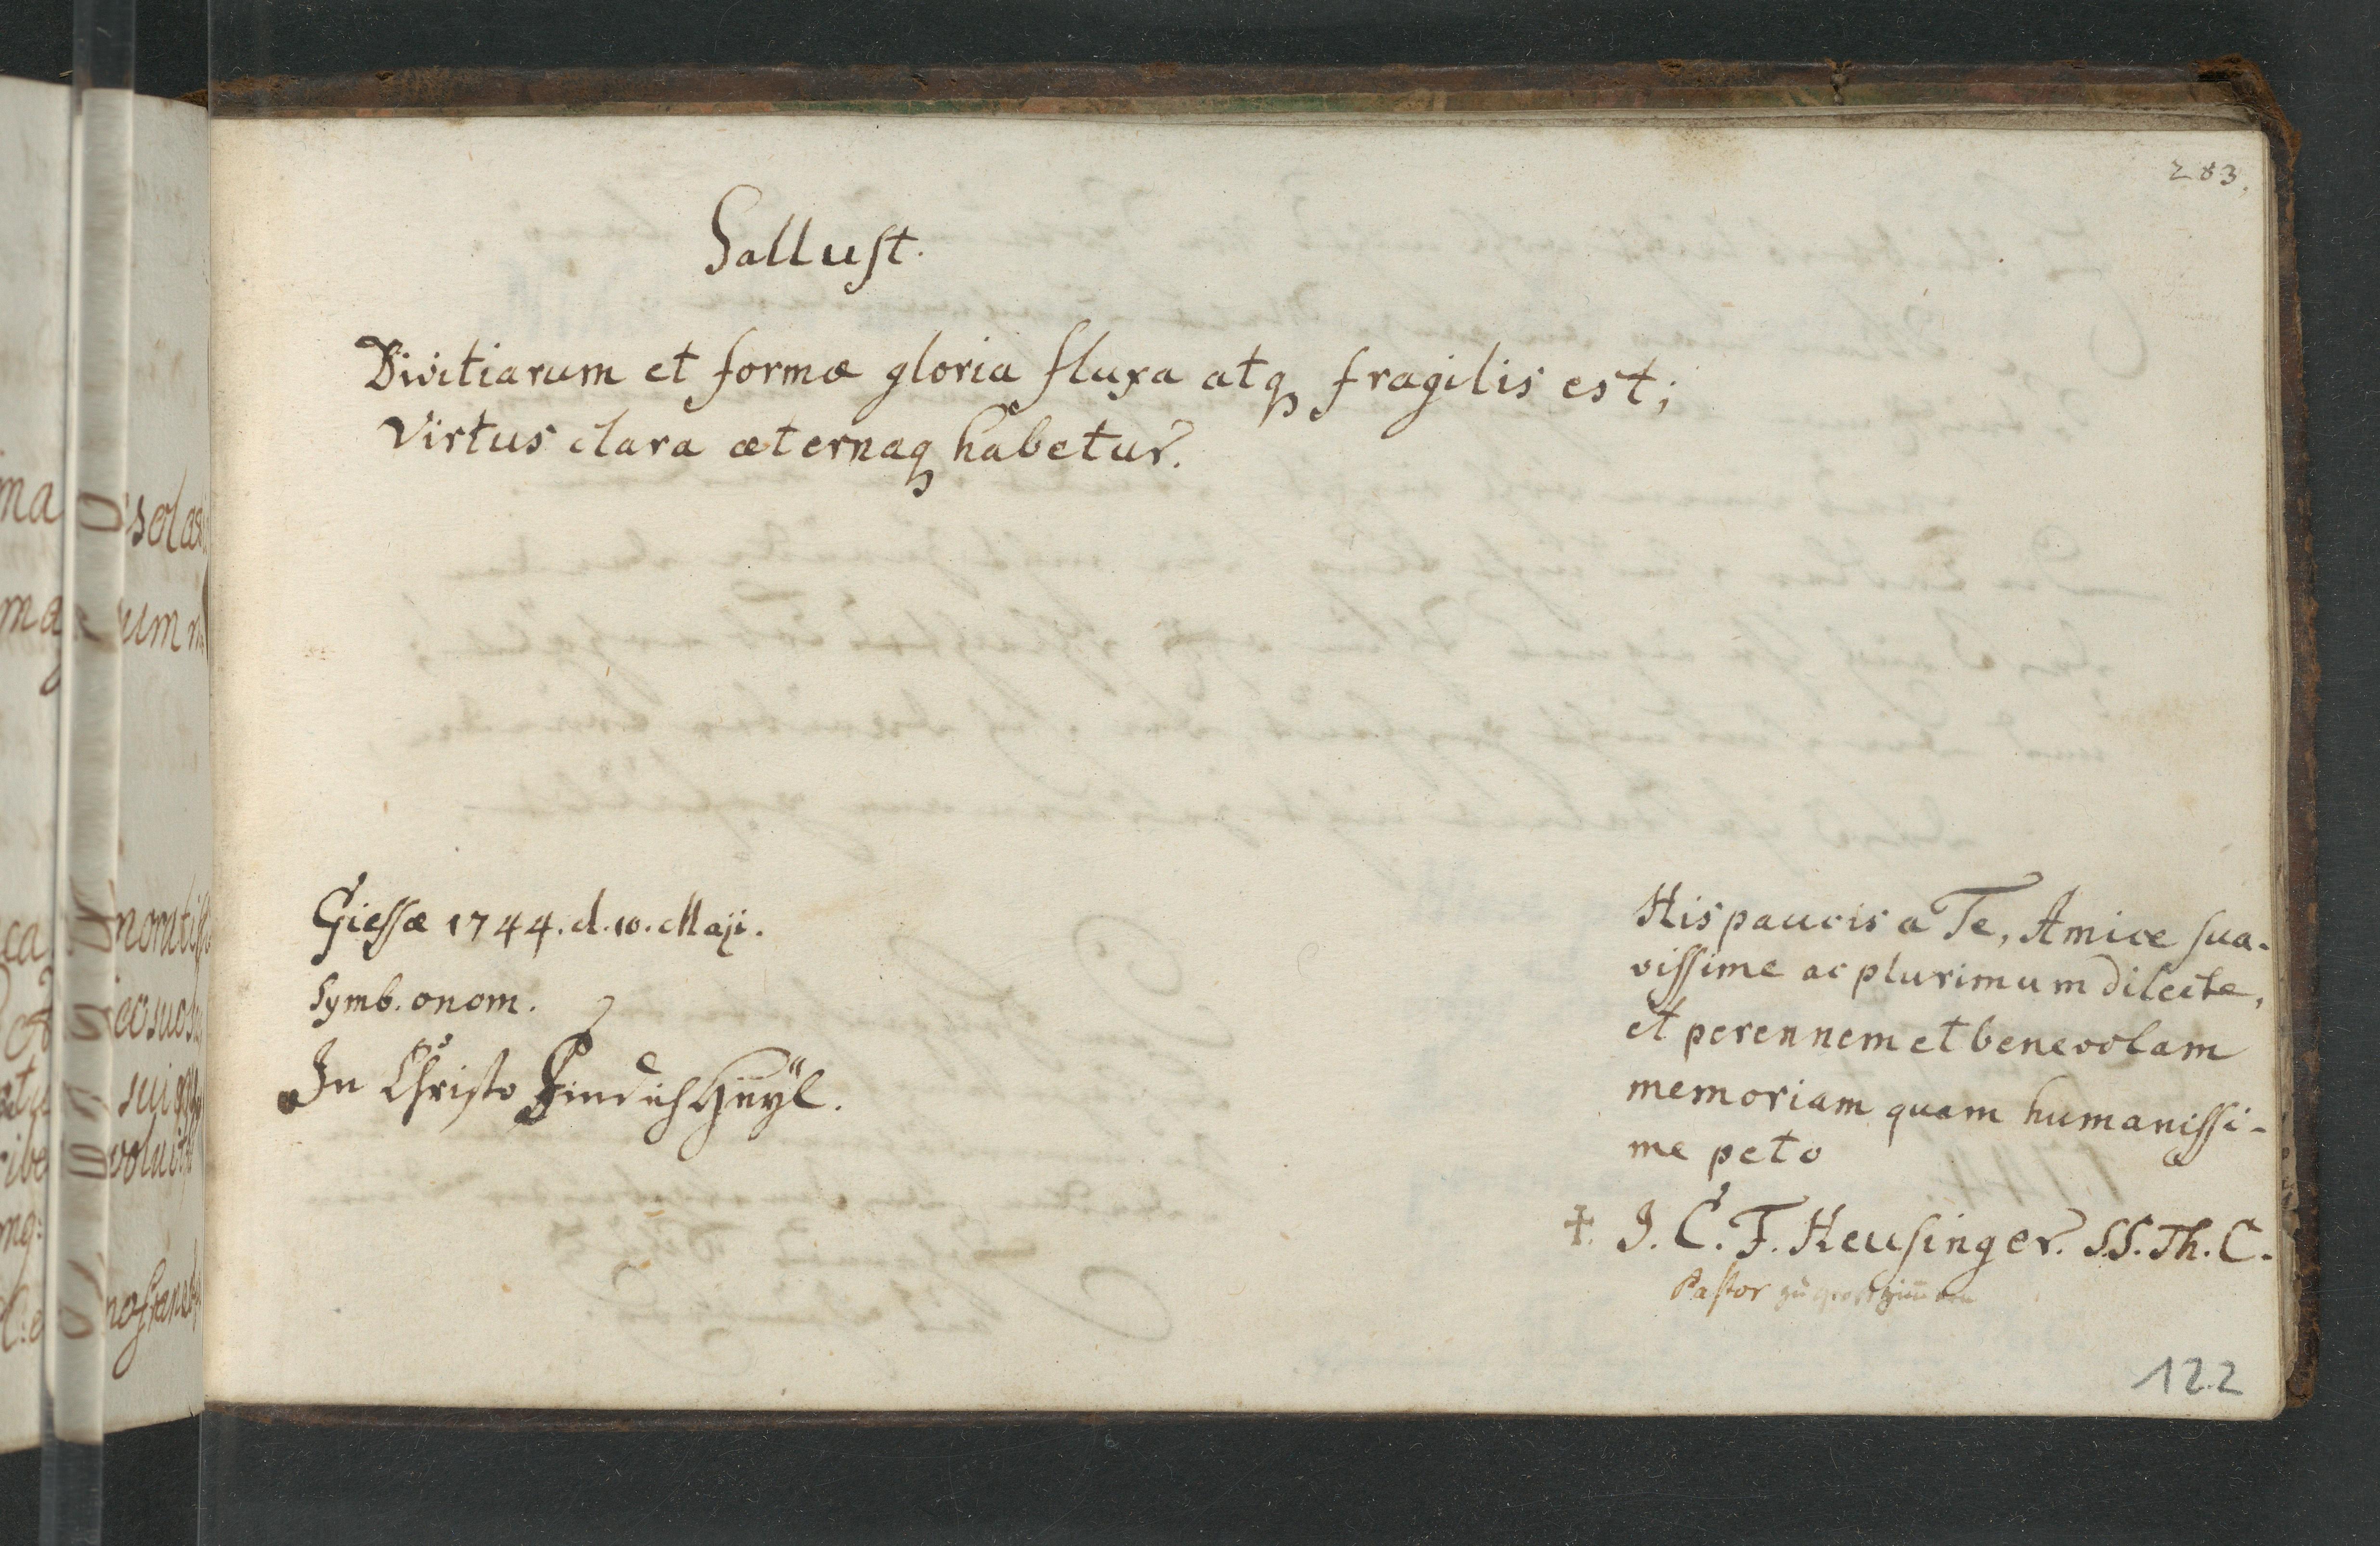 283.
Sallust.
Divitiarum et formæ gloria fluxa atq fragilis est;
Virtus clara æternaq habetur.
Giessæ 1744. d. 10. Maji.
Symb. onom.
In Christo Find ich Heyl.
His paucis a Te, Amice sua-
vissime ac plurimum dilecte,
et perennem et benevolam
memoriam quam humanissi-
me peto
†. J. C. F. Heusinger. SS. Th. C.
Pastor zu
122